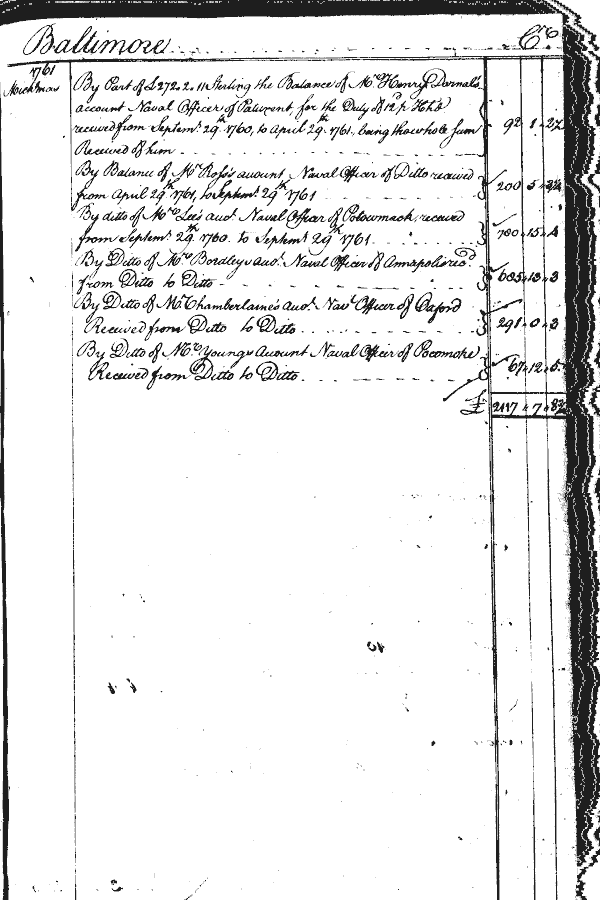 Baltimore Cr
1761
Michmas
By Part of £272.2.11 Sterling the Balance of Mr Henry Darnal's
account Naval Officer of Patuxent, for the Duty of 12d p Hhd
received from Septemr 29th 1760, to April 29th 1761, being the whole Sum
Received of him 92 1
By Balance of Mr Ross's account Naval Officer of Ditto received
from April 29th 1761, to Septemr 29th 1761 200 5
By ditto of Mr Lee's accot Naval Officer of Potowmack, received
from Septemr 29th 1760 to Septemr 29th 1761 780 15 4
By Ditto of Mr Bordleys accot Naval Officer of Annapolis recd
from Ditto to Ditto 685 13 3
By Ditto of Mr Chamberlaine's accot Navl Officer of Oxford
Received from Ditto to Ditto 291 0 3
By Ditto of Mr Youngs Account Naval Officer of Pocomoke
Received from Ditto to Ditto 67 12 5
£ 2117 7